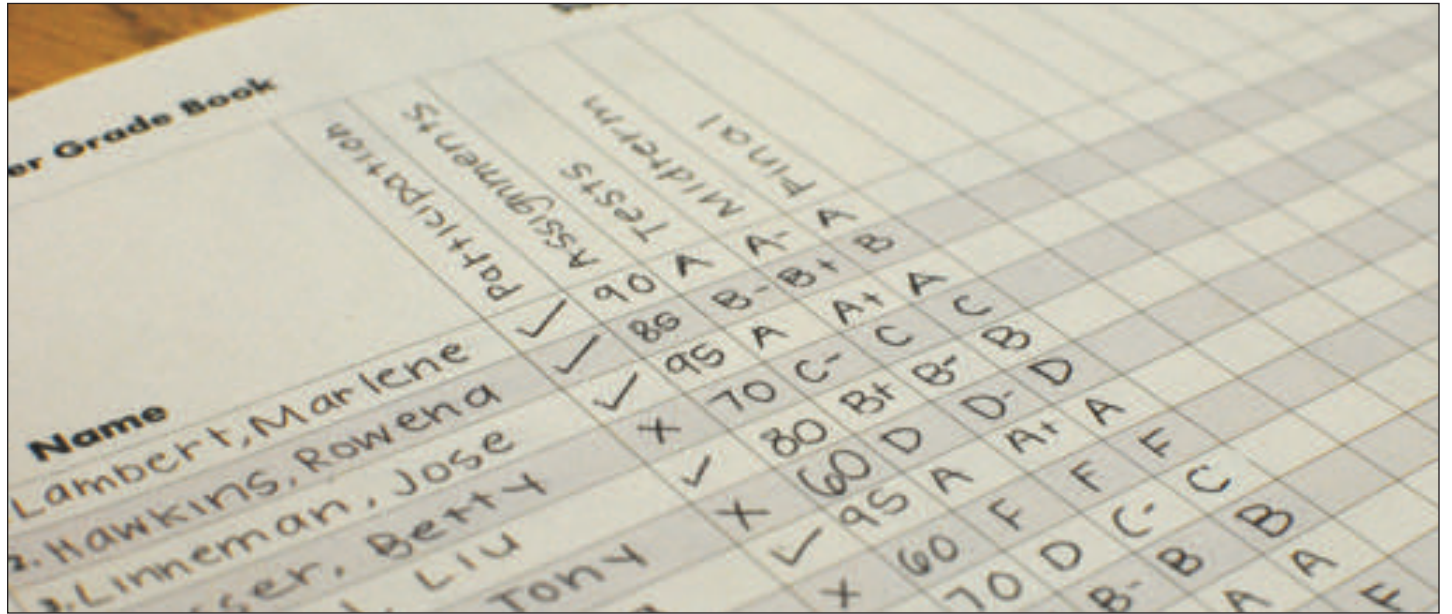 er Grade Book
Participation
Assignments
Tests
Midterm
Final
Name
Lambert, Marlene ✓ 90 A A- A
2. Hawkins, Rowena ✓ B- B+ B
3. Linneman, Jose ✓ 95 A A+ A
sser, Betty X 70 C- C C
Liu ✓ 80 B+ B- B
Tony X 60 D D- D
✓ 95 A A+ A
X 60 F F F
70 D C- C
B- B B
A A
F